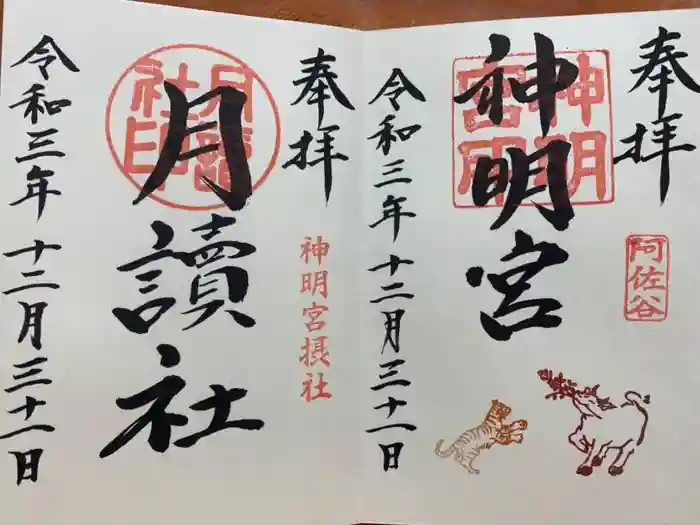 奉拝
阿佐谷
神明宮
神明宮
令和三年十二月三十一日
奉拝
神明宮摂社
月讀社
月讀社印
令和三年十二月三十一日